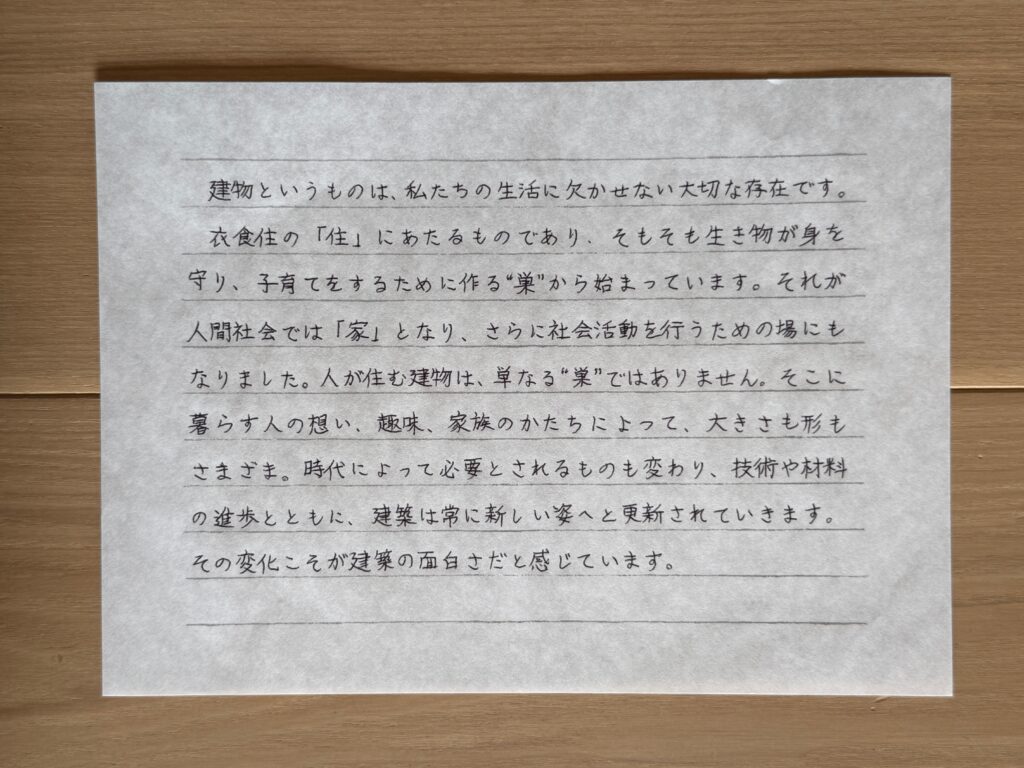 建物というものは、私たちの生活に欠かせない大切な存在です。
衣食住の「住」にあたるものであり、そもそも生き物が身を
守り、子育てをするために作る“巣”から始まっています。それが
人間社会では「家」となり、さらに社会活動を行うための場にも
なりました。人が住む建物は、単なる“巣”ではありません。そこに
暮らす人の想い、趣味、家族のかたちによって、大きさも形も
さまざま。時代によって必要とされるものも変わり、技術や材料
の進歩とともに、建築は常に新しい姿へと更新されていきます。
その変化こそが建築の面白さだと感じています。